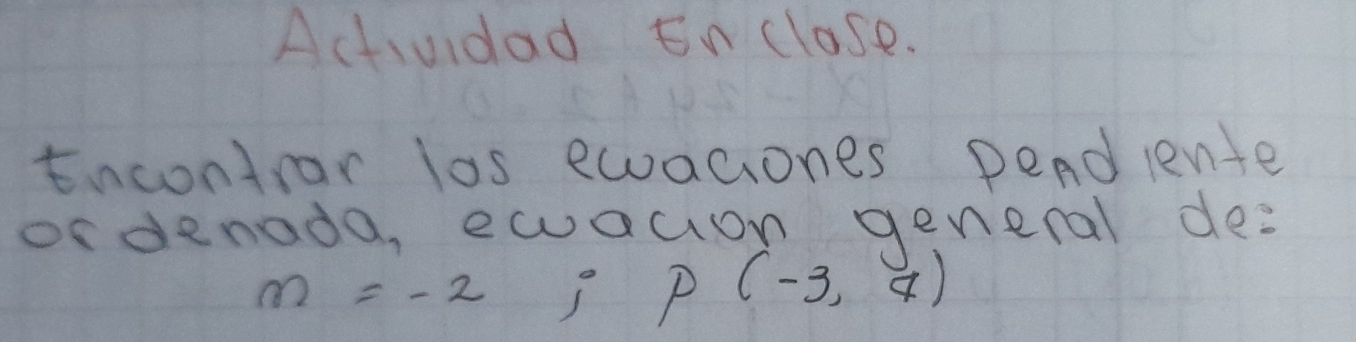 Actividad En clase.
Encontrar las ecuaciones pendiente
ordenada, ecuacion general de:
m = -2 ; p (-3, 4)